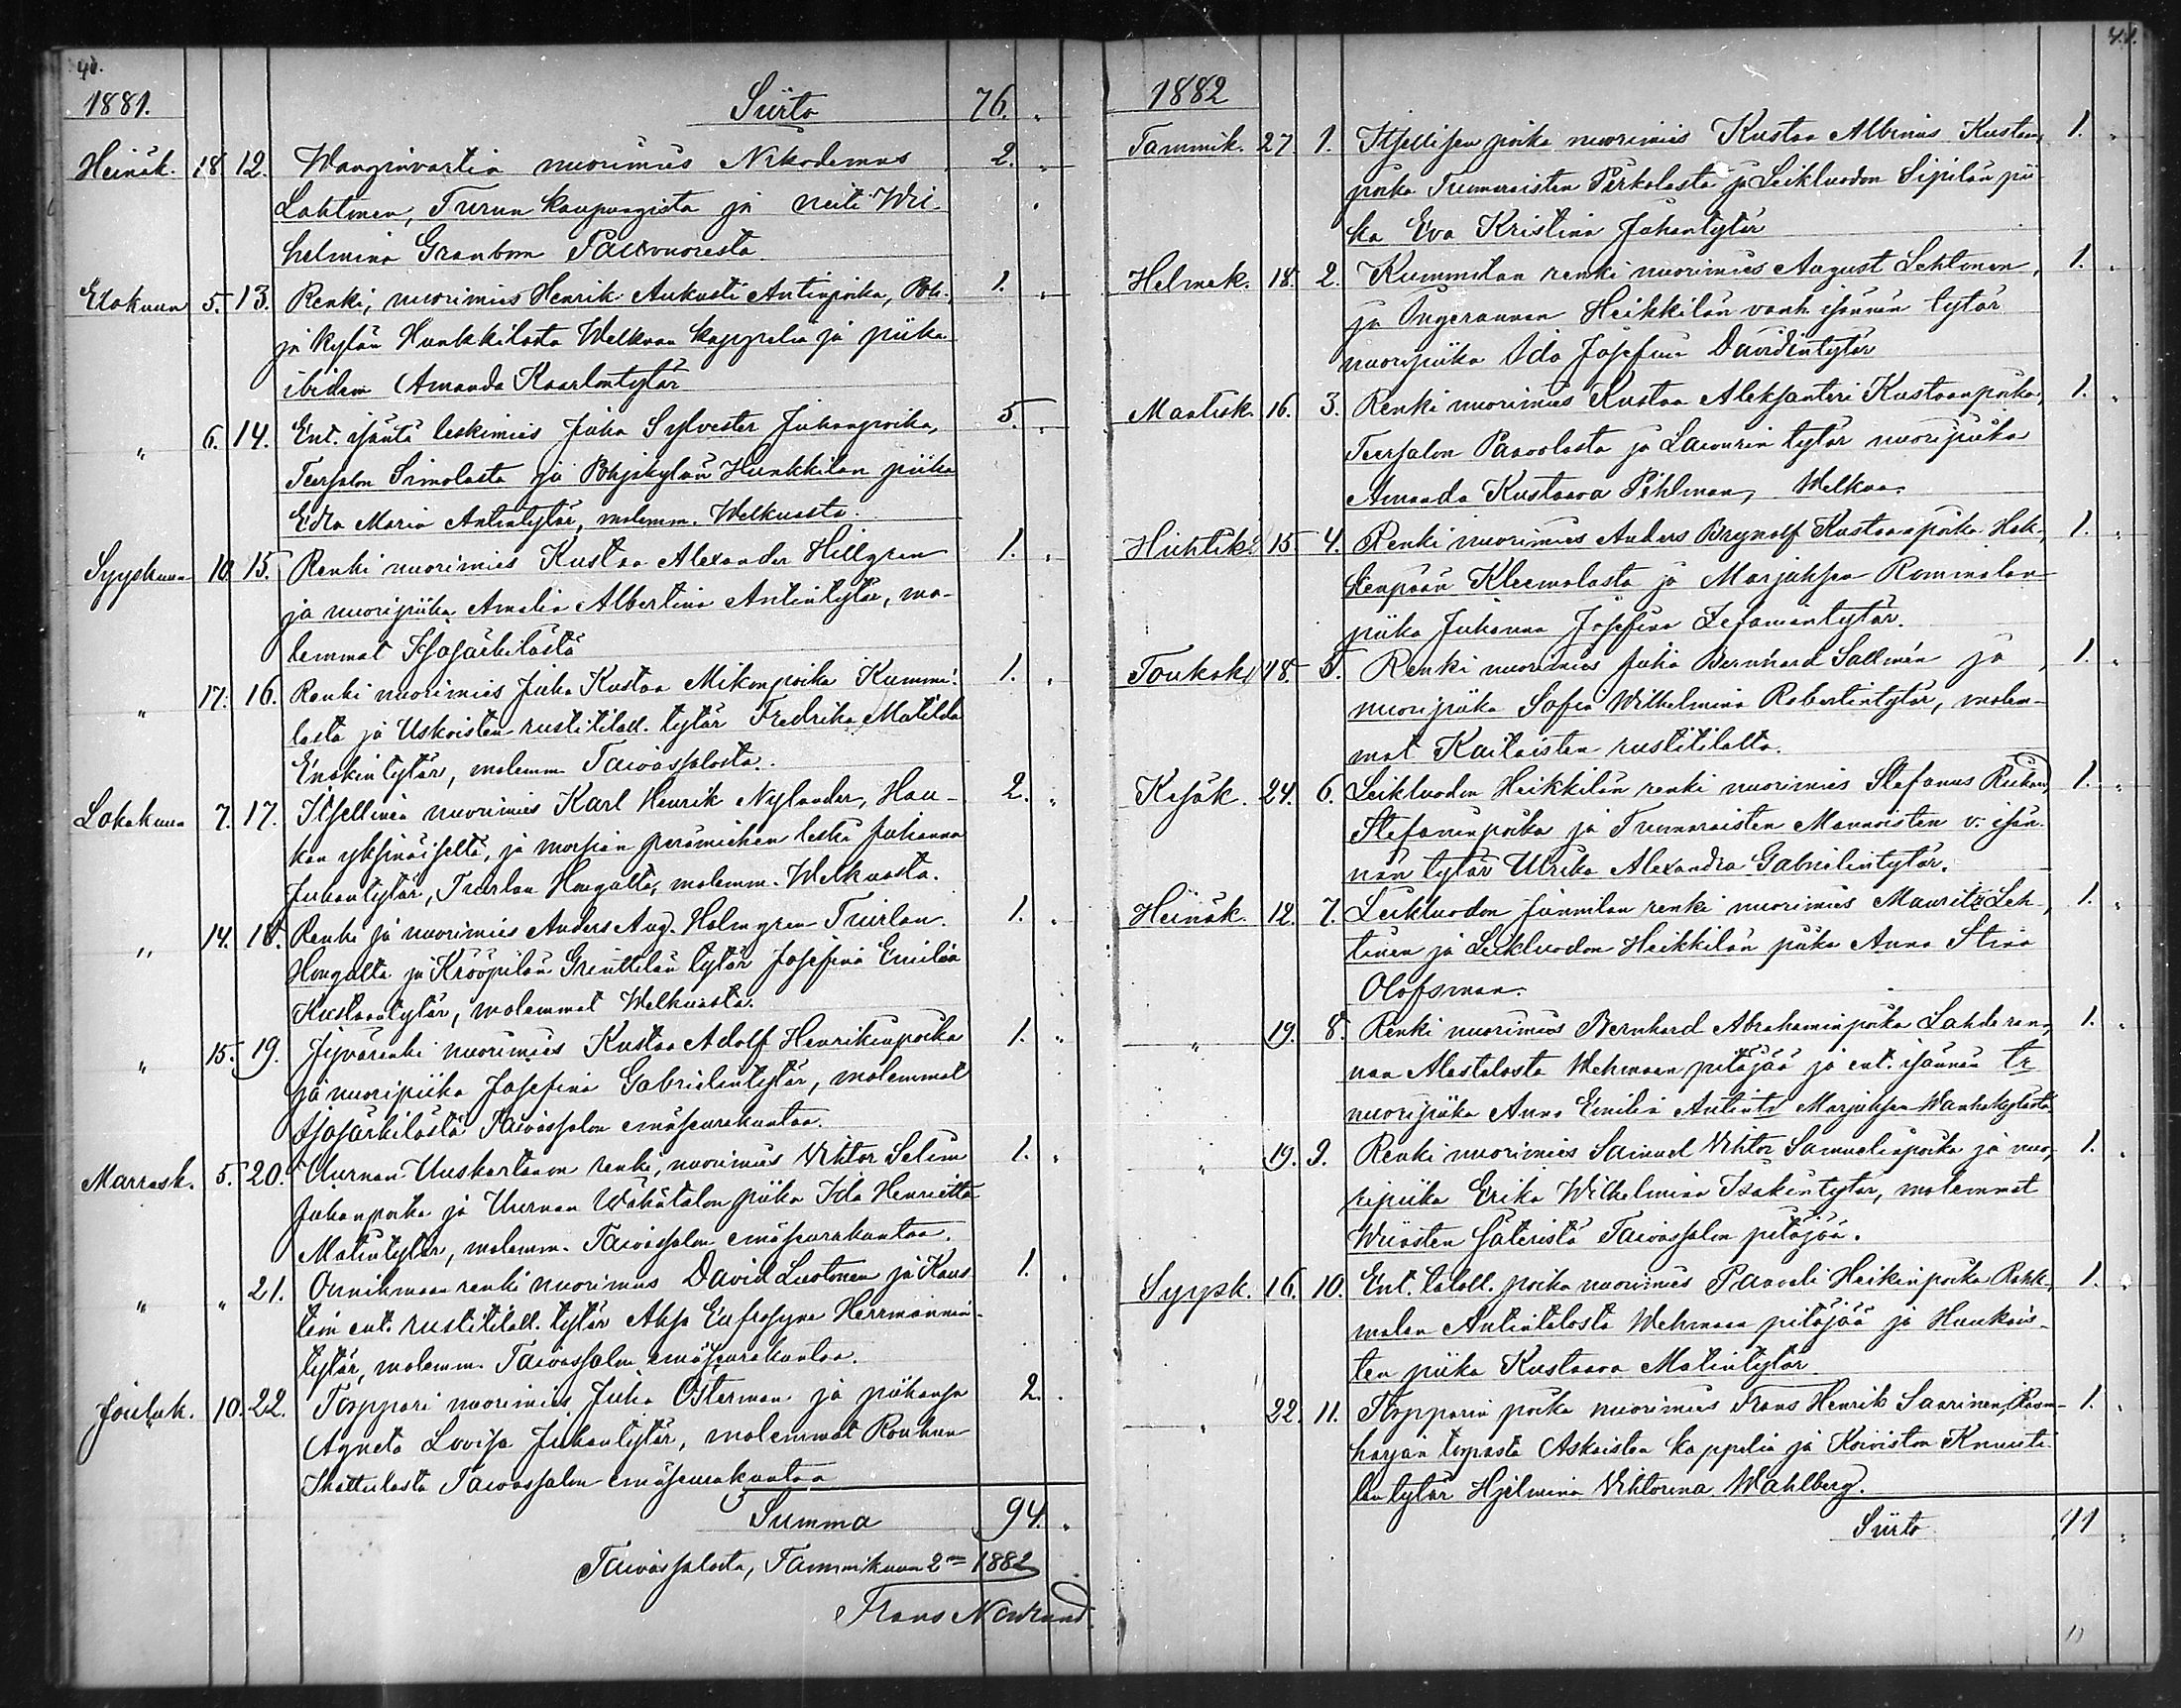 40.
1881. Siirto 76. "
Heinäk. 18 12. Wanginvartia nuorimies Nikodemus 2. "
Lahtinen, Turun kaupungista ja neiti Wil-
helmina Granbom Palovuoresta.
Elokuun 5. 13. Renki, nuorimies Henrik Aukusti Antinpoika, Poh- 1. "
jakylän Hunkkilasta Welkuan kappelia ja piika
ibidem Amanda Kaarlontytär
" 6. 14. Ent. isäntä leskimies Juha Sylvester Juhanpoika, 5. "
Teersalon Simolasta ja Pohjakylän Hunkkilan piika
Edla Maria Antintytär, molemm. Welkuasta.
Syyskuun 10 15. Renki nuorimies Kustaa Alexander Hillgren 1. "
ja nuoripiika Amalia Albertina Antintytär, mo-
lemmat Isosärkilästä
" 17. 16. Renki nuorimies Juha Kustaa Mikonpoika Kummi- 1. "
lasta ja Uskoisten rustitilall. tytär Fredrika Matilda
Enokintytär, molemm. Taivassalosta.
Lokakuun 7. 17. Itsellinen nuorimies Karl Henrik Nylander, Hau- 2. "
kan yksinäiseltä, ja muonamiehen leski Juhanna
Juhantytär, Tuurlan Hougalta, molemm. Welkuasta.
" 14. 18. Renki ja nuorimies Anders Aug. Holmgren Tuurlan 1. "
Hougalta ja Krööpilän Grenttilän tytär Josefina Emilia
Kustaantytär, molemmat Welkuasta.
" 15. 19. Jyvärenki nuorimies Kustaa Adolf Henrikinpoika 1. "
ja nuoripiika Josefina Gabrielintytär, molemmat
Isosärkilästä Taivassalon emäseurakuntaa.
Marrask. 5. 20. Uurnan Uuskartanon renki, nuorimies Viktor Selim 1. "
Juhanpoika ja Uurnan Wähätalon piika Ida Henrietta
Matintytär, molemm. Taivassalon emäseurakuntaa.
" " 21. Onnikmaan renki nuorimies David Luotonen ja Kaus- 1. "
tein ent. rustitilall. tytär Aksa Eufrosyne Herrmannin-
tytär, molemm. Taivassalon emäseurakuntaa.
Jouluk. 10. 22. Torppari nuorimies Juha Österman ja piikansa 2. "
Agneta Lovisa Juhantytär, molemmat Rouhun
Skattulasta Taivassalon emäseurakuntaa
Summa 94. "
Taivassalosta, Tammikuun 2na 1882
Frans
41.
1882
Tammik. 27. 1. Itsellisen poika nuorimies Kustaa Albinus Kustaan- 1. "
poika Tummaisten Perkolasta ja Leikluodon Sipilän pii-
ka Eva Kristina Juhantytär
Helmik. 18. 2. Kummilan renki nuorimies August Lehtonen, 1. "
ja Ingerannan Heikkilän vanh. isännän tytär
nuoripiika Ida Josefina Davidintytär
Maalisk. 16. 3. Renki nuorimies Kustaa Aleksanteri Kustaanpoika, 1. "
Teersalon Paavolasta ja Laivurin tytär nuoripiika
Amanda Kustaava Pihlman, Welkua.
Huhtik. 15 4. Renki nuorimies Anders Brynolf Kustaanpoika Hak- 1. "
kenpään Kleemolasta ja Marjuksen Rommolan
piika Juhanna Josefina Zefanintytär.
Toukok. 18. 5. Renki nuorimies Juha Bernhard Sallmén ja 1. "
nuoripiika Sofia Wilhelmina Robertintytär, molem-
mat Kaitaisten rustitilalta.
Kesäk. 24. 6. Leikluodon Heikkilän renki nuorimies Stefanus 1. "
Stefanuspoika ja Tummaisten Mannoisten v. isän-
nän tytär Ulrika Alexandra Gabrielintytär.
Heinäk. 12. 7. Leikluodon Junnilan renki nuorimies Mauritz Leh- 1. "
tinen ja Leikluodon Heikkilän piika Anna Stina
Olofsman.
" 19. 8. Renki nuorimies Bernhard Abrahaminpoika Lahdaran- 1. "
nan Alastalosta Wehmaan pitäjää ja ent. isännän tr
nuoripiika Anna Emilia Antintr Marjuksen Wanhakylästä
" 19. 9. Renki nuorimies Samuel Viktor Samuelinpoika ja nuo- 1. "
ripiika Erika Wilhelmina Isakintytär, molemmat
Wiiasten säteristä Taivassalon pitäjää.
Syysk. 16. 10. Ent. talall. poika nuorimies Paaveli Heikinpoika Rahk- 1. "
molan Antintalosta Wehmaan pitäjää ja Huukais-
ten piika Kustaava Matintytär
" 22. 11. Torpparin poika nuorimies Frans Henrik Saarinen, 1. "
harjan torpasta Askaisten kappelia ja Koiviston Knuuti-
lan tytär Hjelmina Viktorina Wahlberg.
Siirto 11 "
11